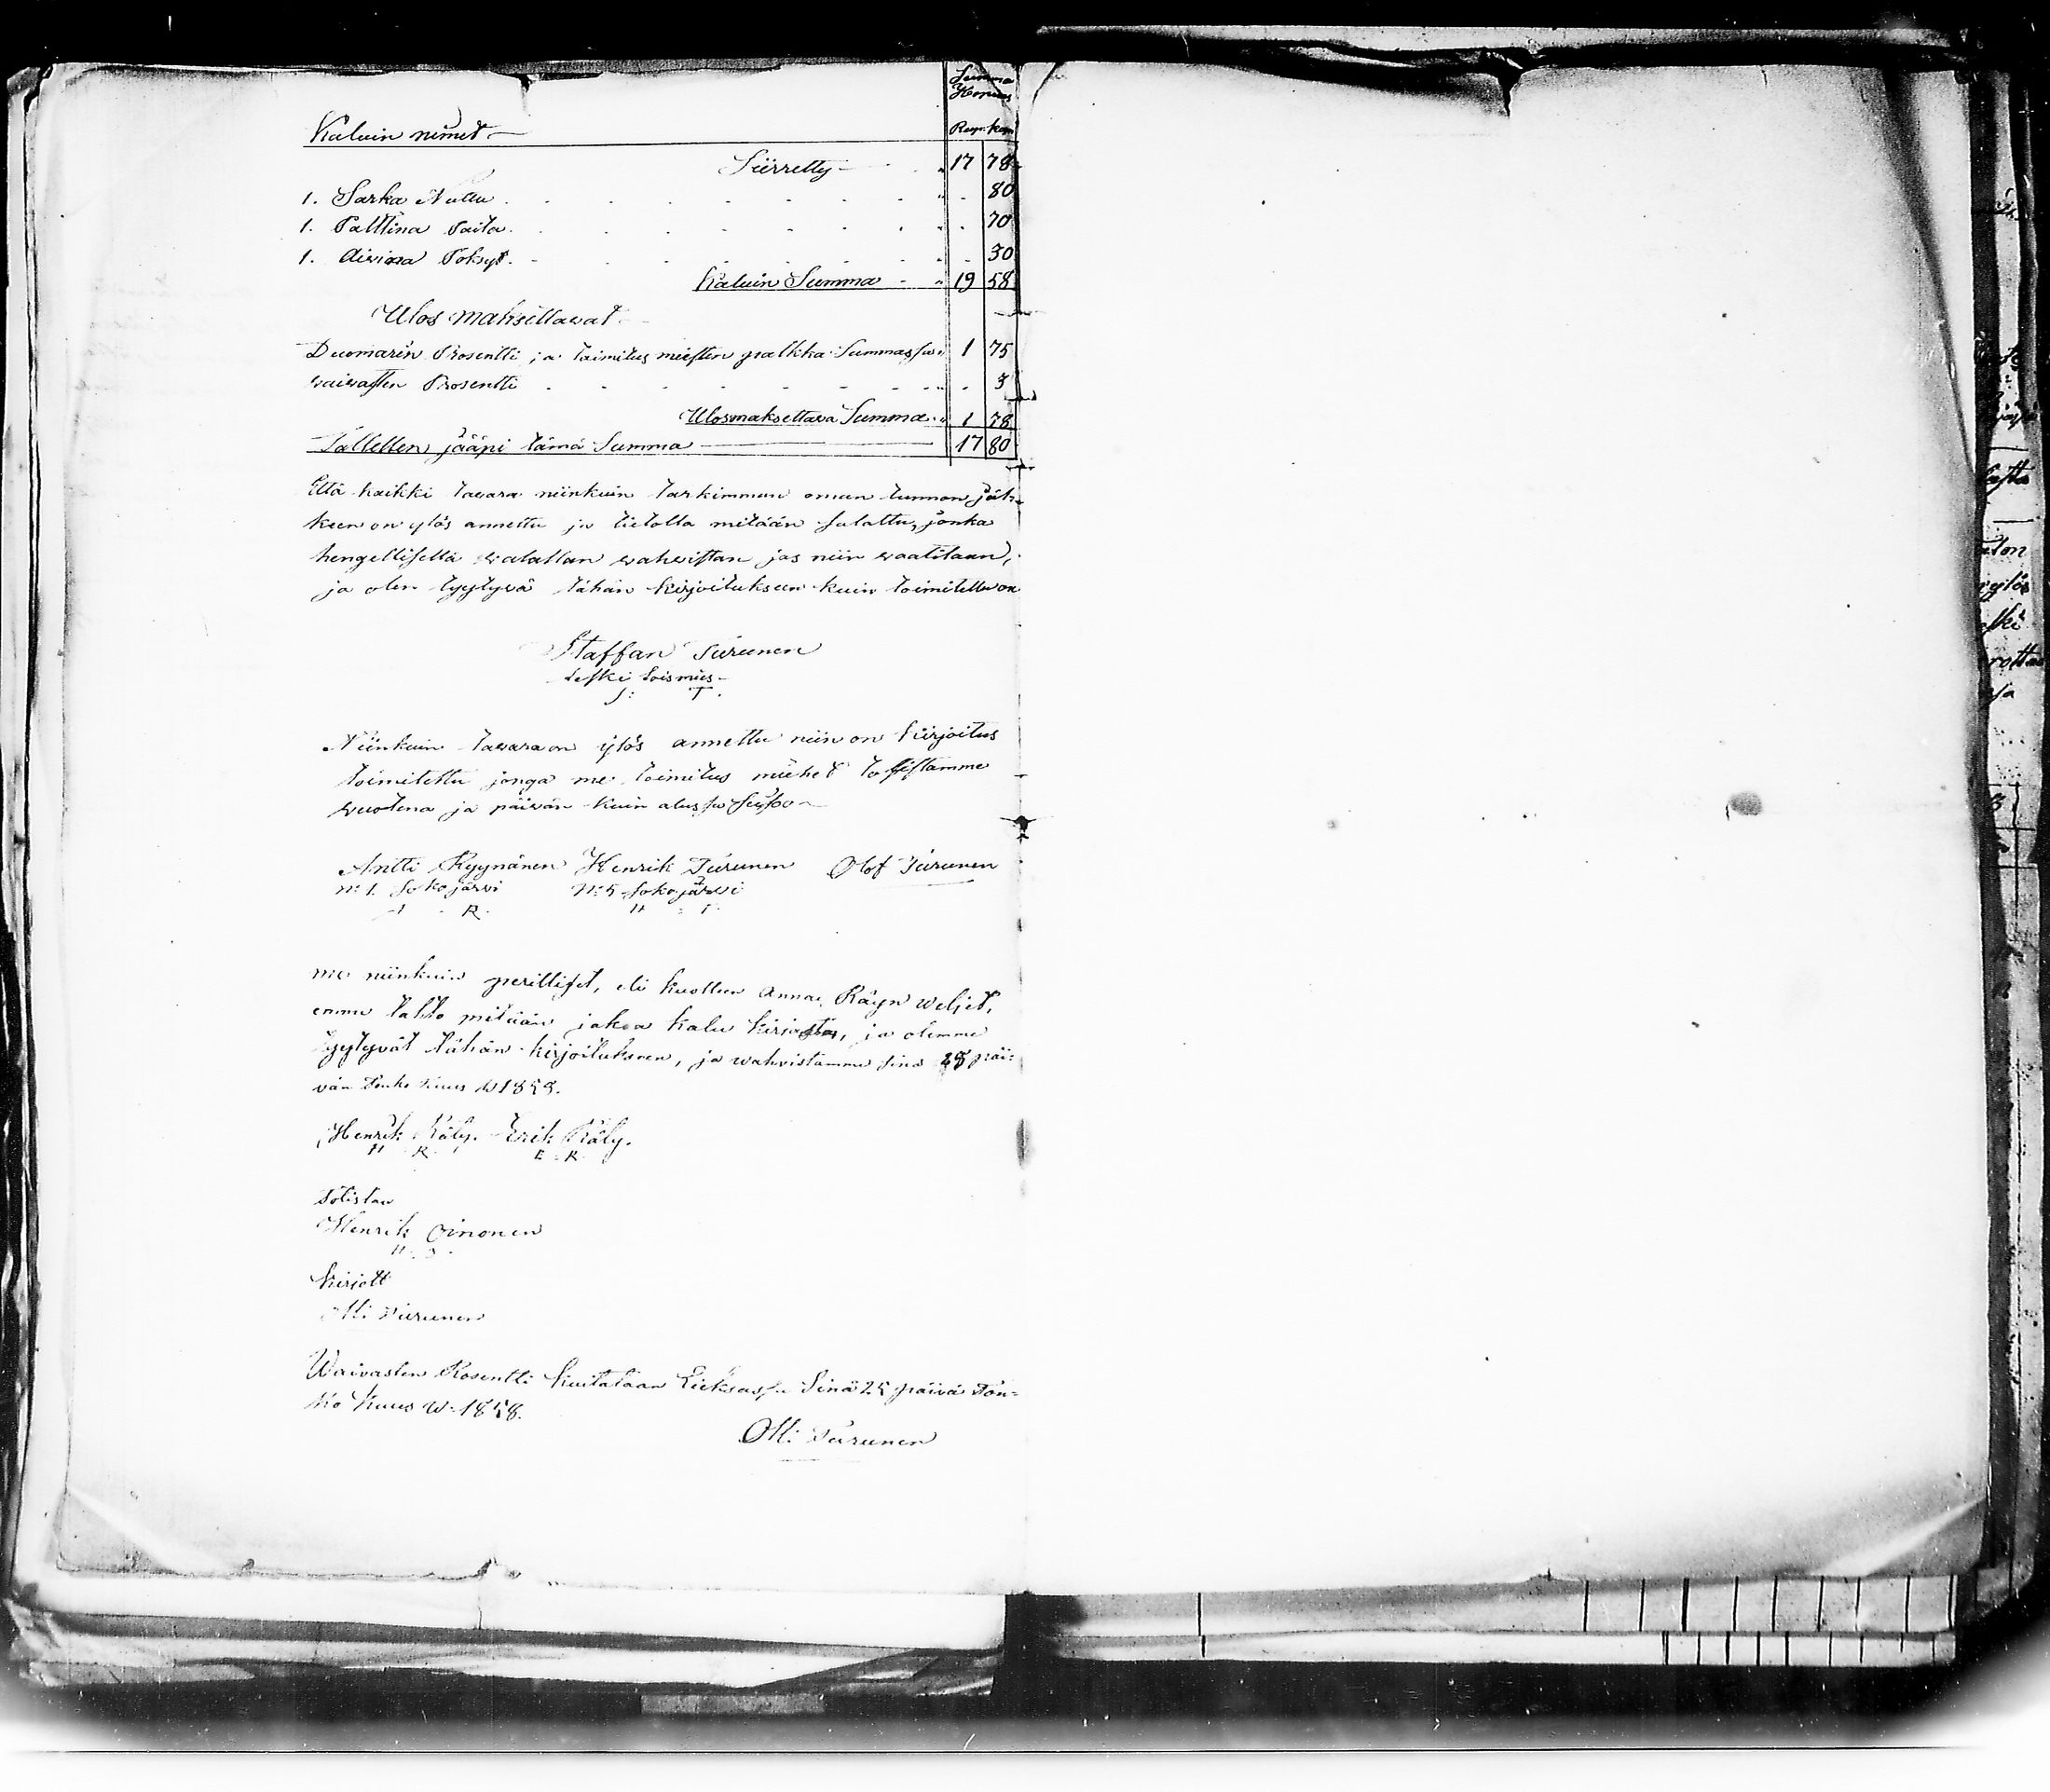 Summa
Hopias
Kaluin nimet
Rupl. kop
Siirretty 17 78
1. Sarka Nuttu 80
1. Palttina Paita 70
1. Aivina Poksyt 30
Kaluin Summa 19 58
Ulos maksettavat
Duomarin Prosentti ja toimitus miesten palkka Summassa 1 75
waiwasten Prosentti 3
Ulosmaksettava Summa 1 78
Tallellen jääpi tämä Summa 17 80
Että kaikki tavara niinkuin tarkimman oman tunnon jäl-
keen on ylös annettu ja tietolla mitään salattu, jonka
hengellisellä walallan wahvistan jos niin waatitaan,
ja olen tyytyvä tähän kirjoitukseen kuin toimitettu on
Staffan Turunen
Leski Loismies
S: T.
Niinkuin tavara on ylös annettu niin on kirjoitus
toimitettu jonga me toimitus miehet tossistamme
wuotena ja päivän kuin alussa seisoo
Antti Ryynänen Henrik Turunen Olof Turunen
No 1. Sokojärvi No 5 Sokojärvi
A . R. H : T.
me niinkuin perilliset, eli kuolleen Anna Räyn weljet,
emme tahto mitään jakoa kalu kirjasta, ja olemme
tyytyvät tähän kirjoitukseen, ja wahvistamme sinä 25 päi-
vän Touko kuus w 1858.
Henrik Räty. Erik Räty.
H R E . R
Totistaa
Henrik Oinonen
H. O.
kirjoitt
Ott: Turunen
Waivasten Prosentti kuitataan Lieksassa Sinä 25 päivä Tou-
ko kuus w. 1858.
Ott: Turunen